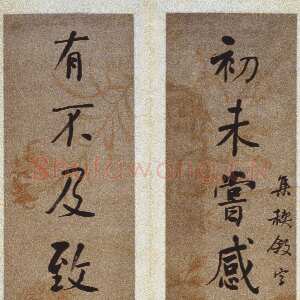 初未嘗感
集禊敘字
有不及致